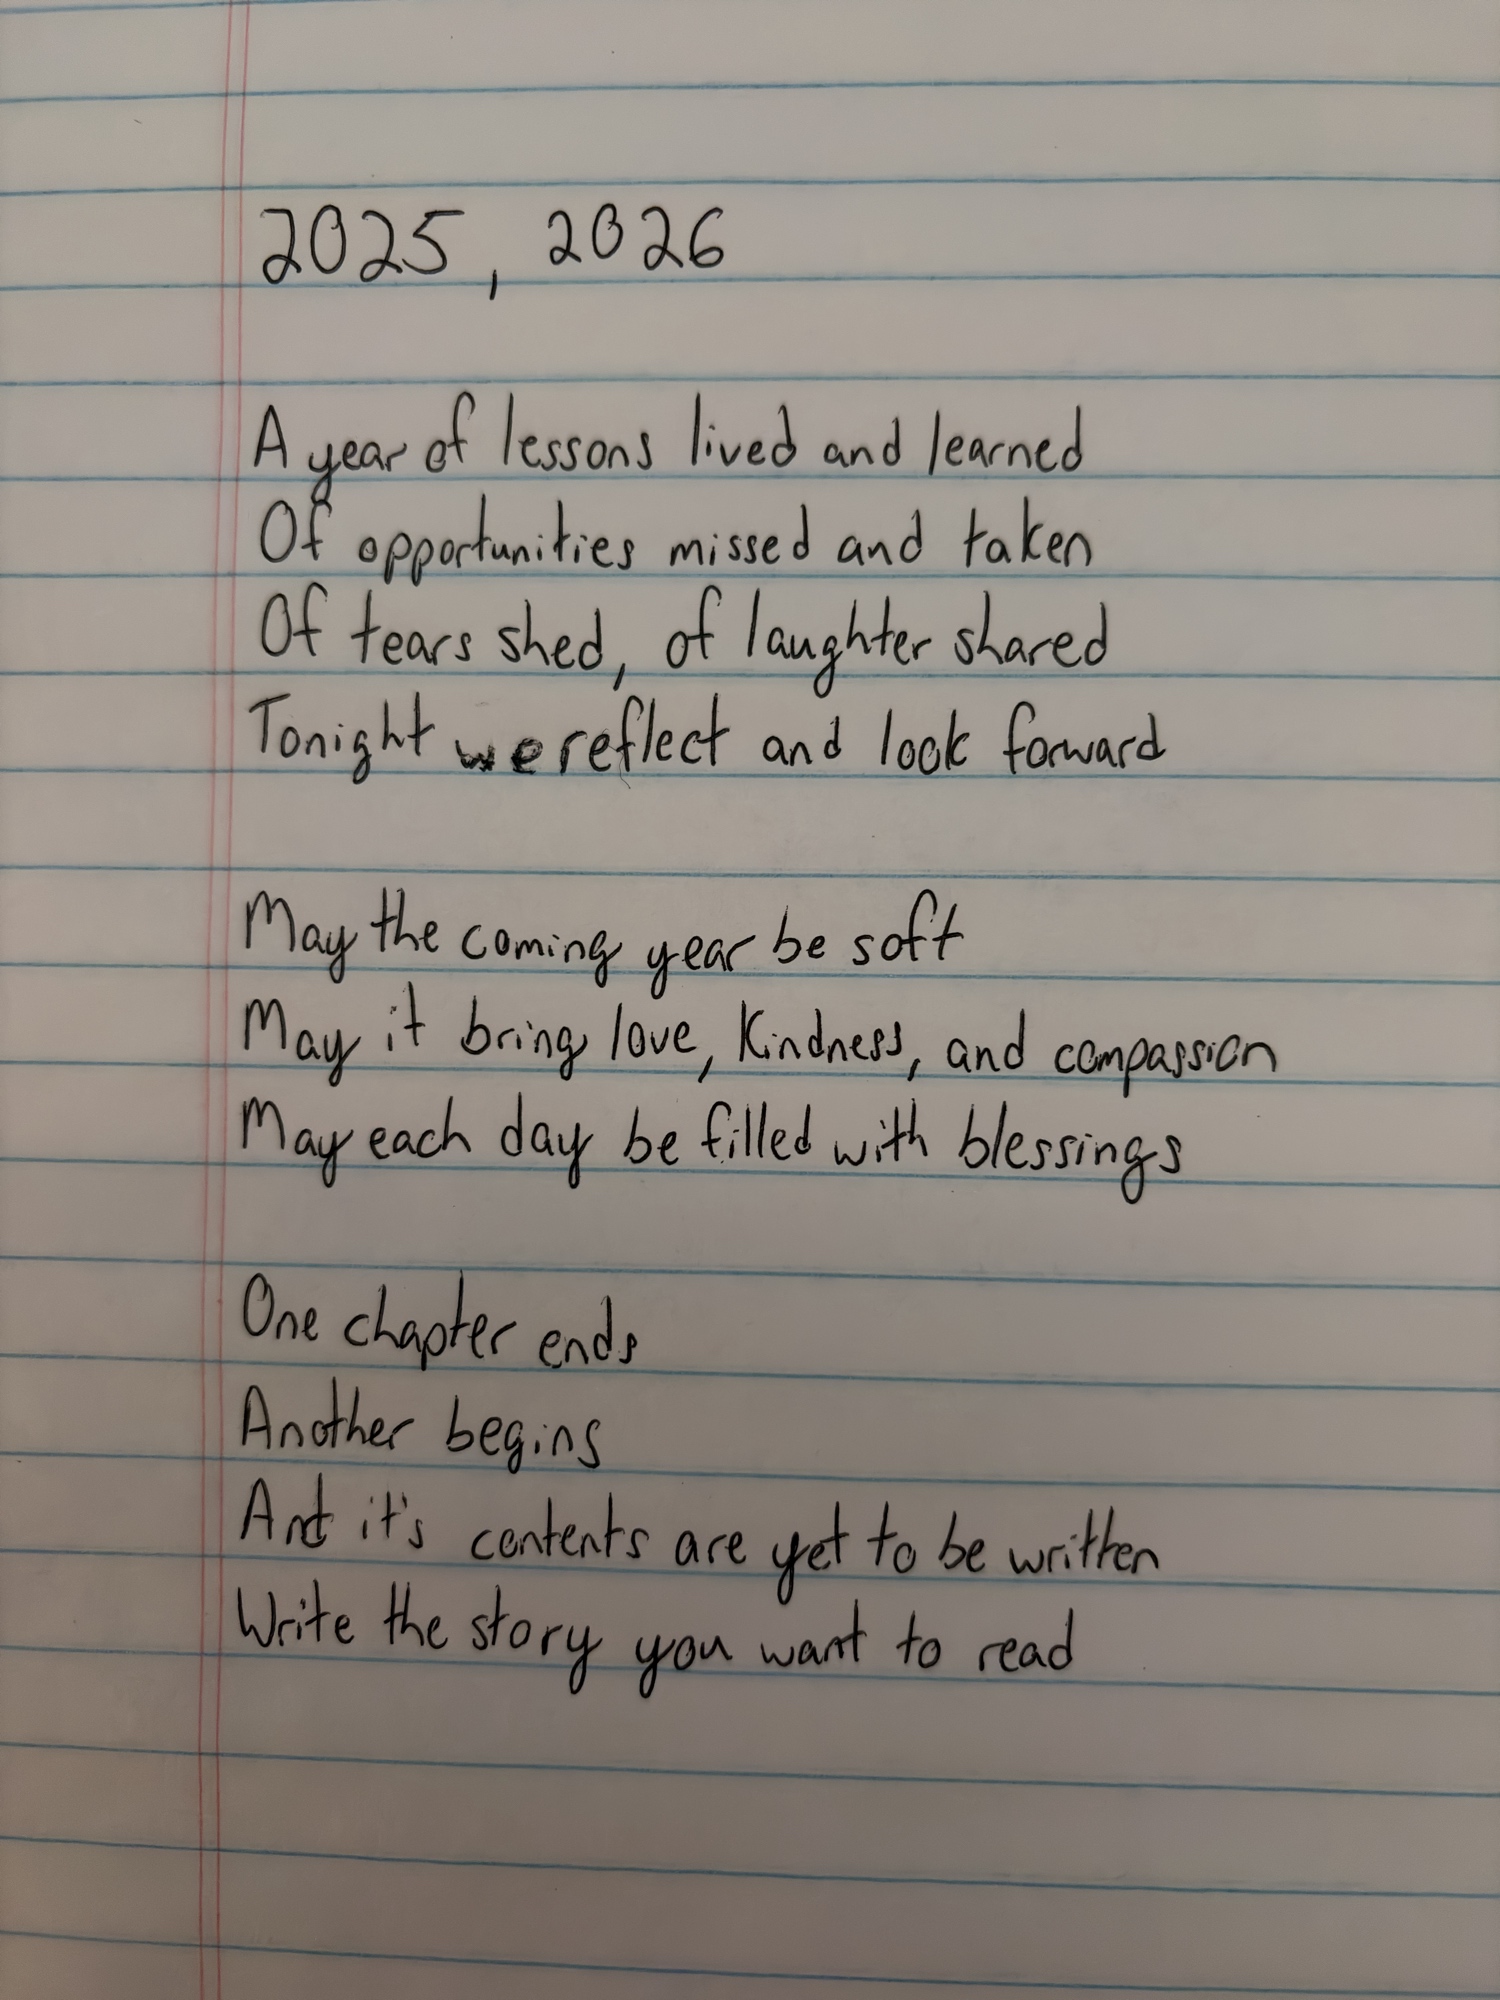 2025, 2026
A year of lessons lived and learned
Of opportunities missed and taken
Of tears shed, of laughter shared
Tonight we reflect and look forward
May the coming year be soft
May it bring love, kindness, and compassion
May each day be filled with blessings
One chapter ends
Another begins
And it's contents are yet to be written
Write the story you want to read